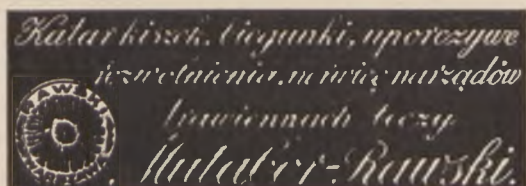 Katar kiszek, biegunki, uporczywe
rozwolnienia, nerwicę narządów
trawiennych leczy
Mutabor-Rawski.
RAWSKI